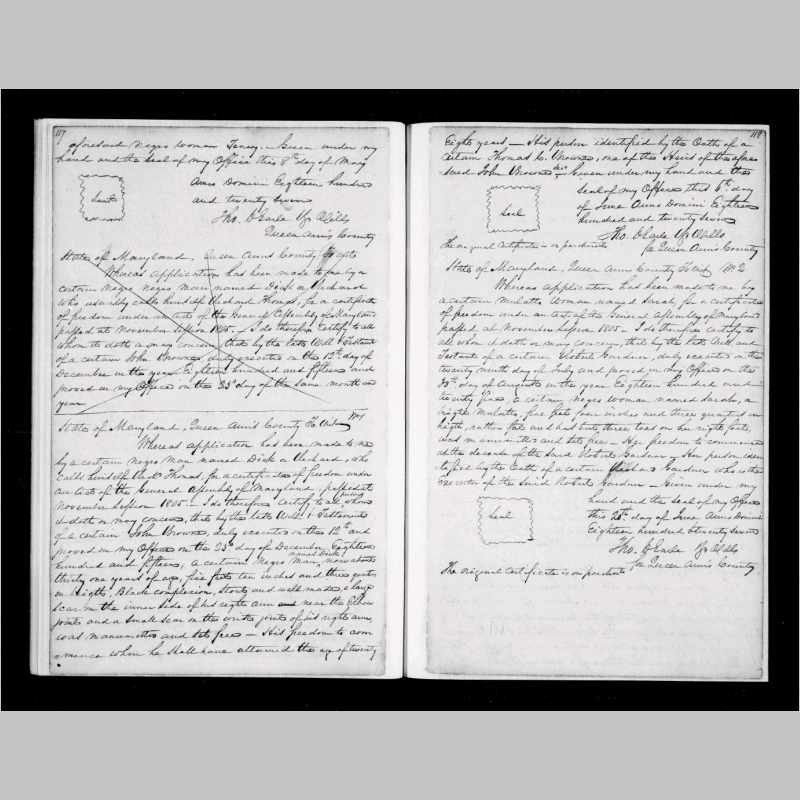 117
aforesaid negro woman Jenny. Given under my
hand and the seal of my Office this 8th day of May
Seal
Anno Domini Eighteen hundred
and twenty seven
Tho. C Earle Rg Wills
Queen Ann's County
State of Maryland, Queen Anns County To wit
Whereas application has been made to me by a
certain negro negro man named Dick or Richard
who usually calls himself Richard Thomas, for a certificate
of freedom under an act of the General Assembly of Maryland
passed at November Session 1805. I do therefore Certify to all
whom it doth or may concern, that by the late Will & Testament
of a certain John Brown, duly executed on the 12th day of
December in the year Eighteen hundred and fifteen and
proved in my Office on the 23d day of the same month and
year
State of Maryland, Queen Ann's County To Wit No 1
Whereas application has been made to me
by a certain Negro man named Dick or Richard, who
calls himself Richd Thomas, for a certificate of freedom under
an act of the General Assembly of Maryland, passed at
November Session 1805 — I do therefore certify to all whom
it doth or may concern, that by the late Will & Testament
of a certain John Brown, duly executed on the 12th and
proved in my Office on the 23d day of December Eighteen
hundred and fifteen, a certain Negro Man, named Dick now about
thirty one years of age, five feet ten inches and three quarters
in height, Black complexion, Stout and well made, a large
scar on the inner side of his right arm and near the Elbow
joint and a small scar on the wrist joint of his right arm,
was manumitted and set free — His freedom to com
-mence when he shall have attained the age of twenty
118
Eight years — His person identified by the Oath of a
certain Thomas C. Brown, one of the Heirs of the afore
said John Brown Given under my hand and the
Seal
Seal of my Office this 6th day
of June Anno Domini Eighteen
hundred and twenty seven
Tho. C Earle Rg Wills
for Queen Ann's County
The original certificate is on parchment
State of Maryland, Queen Ann's County To Wit No 2
Whereas application has been made to me by
a certain Mulatto Woman named Sarah, for a certificate
of freedom under an act of the General Assembly of Maryland
passed at November Session 1805 — I do therefore certify to
all whom it doth or may concern, that by the late Will and
Testament of a certain Robert Gardner, duly executed on the
twenty ninth day of July and proved in my Office on the
30th day of August in the year Eighteen hundred and
twenty five, a certain negro woman named Sarah, a
bright Mulatto, five feet four inches and three quarters in
height, rather fat and has lost three toes on her right foot,
was manumitted and set free — Her freedom to commence
at the decease of the said Robert Gardner — Her person iden
tified by the Oath of a certain Gardner who is the
executor of the said Robert Gardner — Given under my
Seal
hand and the seal of my Office
this 20th day of June Anno Domini
Eighteen hundred & twenty seven
Tho. C Earle Rg Wills
for Queen Ann's County
The original certificate is on parchment